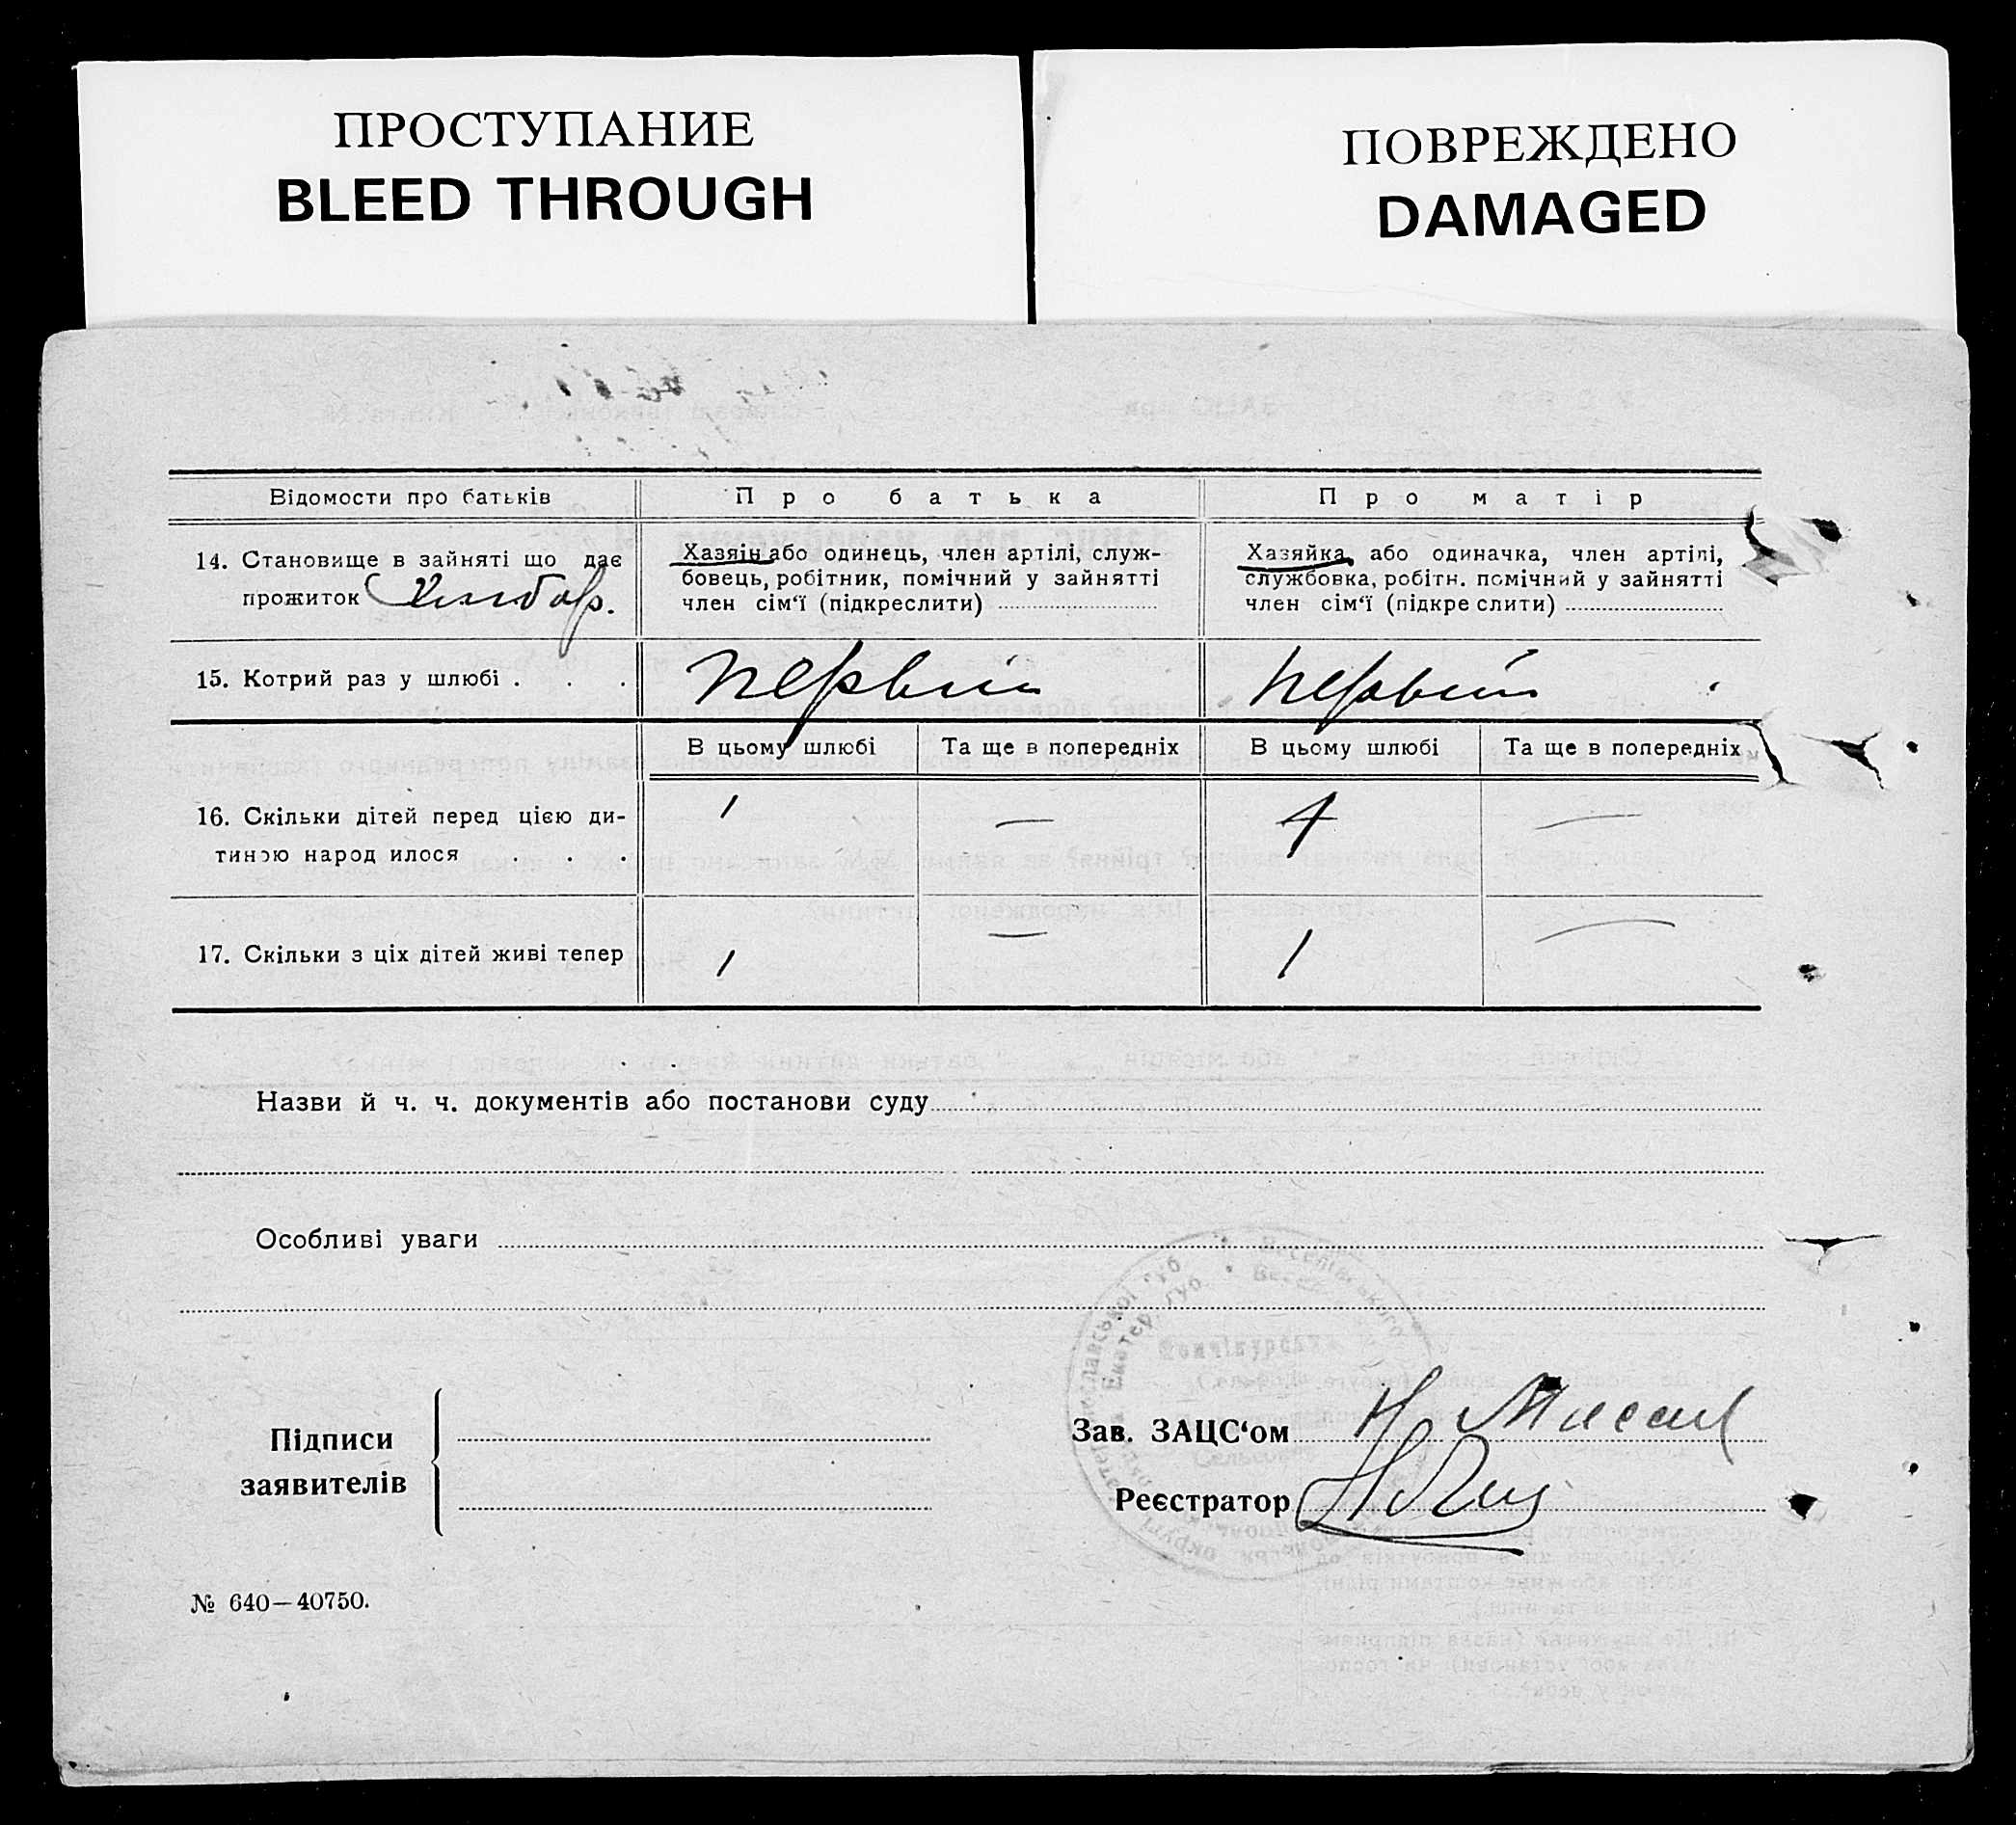 ПРОСТУПАНИЕ
BLEED THROUGH
ПОВРЕЖДЕНО
DAMAGED
Відомости про батьків
Про батька
Про матір
14. Становище в зайняті що дає
прожиток
Хазяін або одинець, член артілі, служ-
бовець, робітник, помічний у зайнятті
член сім‘ї (підкреслити)
Хазяйка, або одиначка, член артілі,
службовка, робітн. помічний у зайнятті
член сім‘ї (підкре слити)
15. Котрий раз у шлюбі . . .
первий
первий
В цьому шлюбі
Та ще в попередніх
В цьому шлюбі
Та ще в попередніх
16. Скільки дітей перед цією ди-
тиною народ илося . . .
1
—
4
—
17. Скільки з ціх дітей живі тепер
1
—
1
—
Назви й ч. ч. документів або постанови суду
Особливі уваги
Підписи
заявителів
Зав. ЗАЦС‘ом
Реєстратор
№ 640—40750.